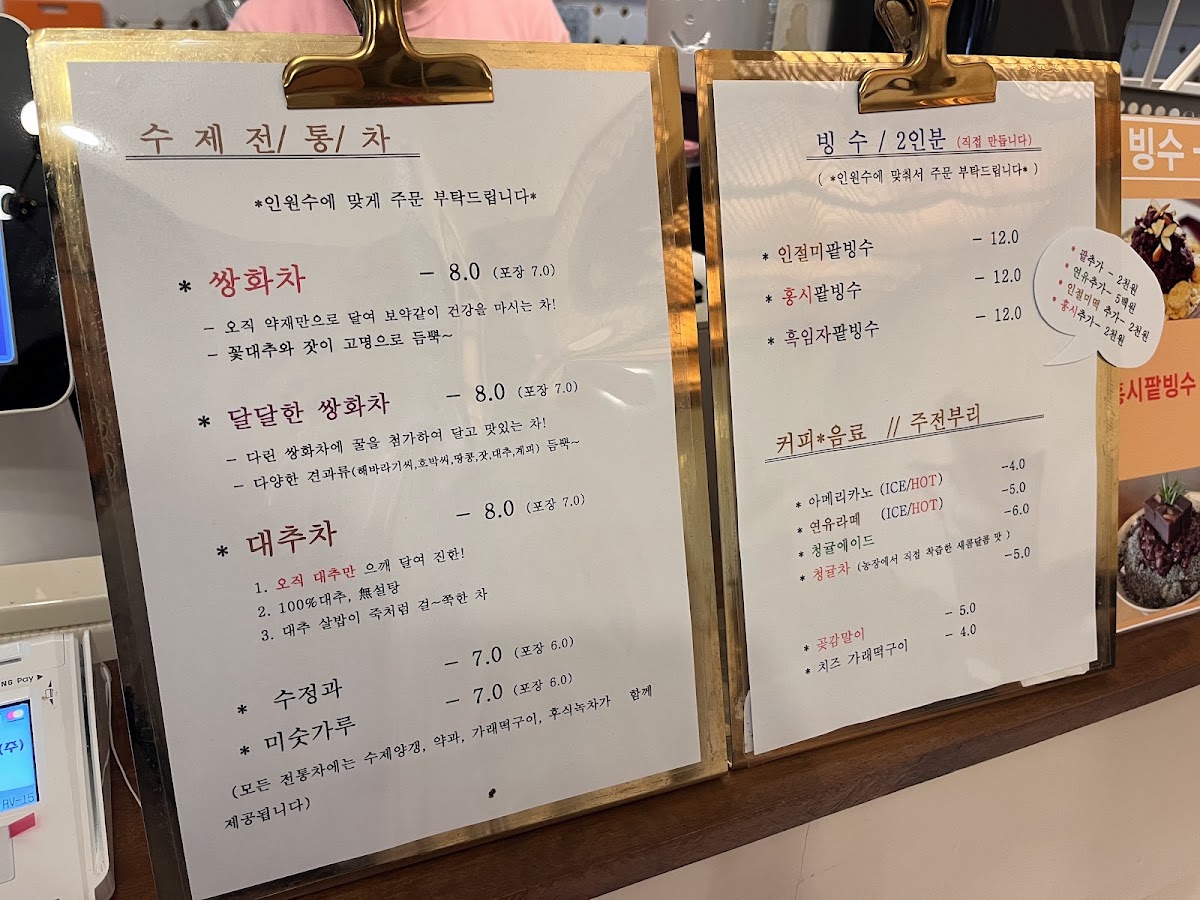 수 제 전/ 통/ 차
*인원수에 맞게 주문 부탁드립니다*
* 쌍화차 - 8.0 (포장 7.0)
- 오직 약재만으로 달여 보약같이 건강을 마시는 차!
- 꽃대추와 잣이 고명으로 듬뿍~
* 달달한 쌍화차 - 8.0 (포장 7.0)
- 다린 쌍화차에 꿀을 첨가하여 달고 맛있는 차!
- 다양한 견과류(해바라기씨,호박씨,땅콩,잣,대추,계피) 듬뿍~
* 대추차 - 8.0 (포장 7.0)
1. 오직 대추만 으깨 달여 진한!
2. 100%대추, 無설탕
3. 대추 살밥이 죽처럼 걸~쭉한 차
* 수정과 - 7.0 (포장 6.0)
* 미숫가루 - 7.0 (포장 6.0)
(모든 전통차에는 수제양갱, 약과, 가래떡구이, 후식녹차가 함께
제공됩니다)
빙 수 / 2인분 (직접 만듭니다)
( *인원수에 맞춰서 주문 부탁드립니다* )
* 인절미팥빙수 - 12.0
* 홍시팥빙수 - 12.0
* 흑임자팥빙수 - 12.0
* 팥추가 - 2천원
* 연유추가- 5백원
* 인절미떡 추가- 2천원
* 홍시추가- 2천원
커피*음료 // 주전부리
* 아메리카노 (ICE/HOT) -4.0
* 연유라떼 (ICE/HOT) -5.0
* 청귤에이드 -6.0
* 청귤차 (농장에서 직접 착즙한 새콤달콤 맛) -5.0
* 곶감말이 - 5.0
* 치즈 가래떡구이 - 4.0
빙수
홍시팥빙수
NG Pay
(주)
RV-15